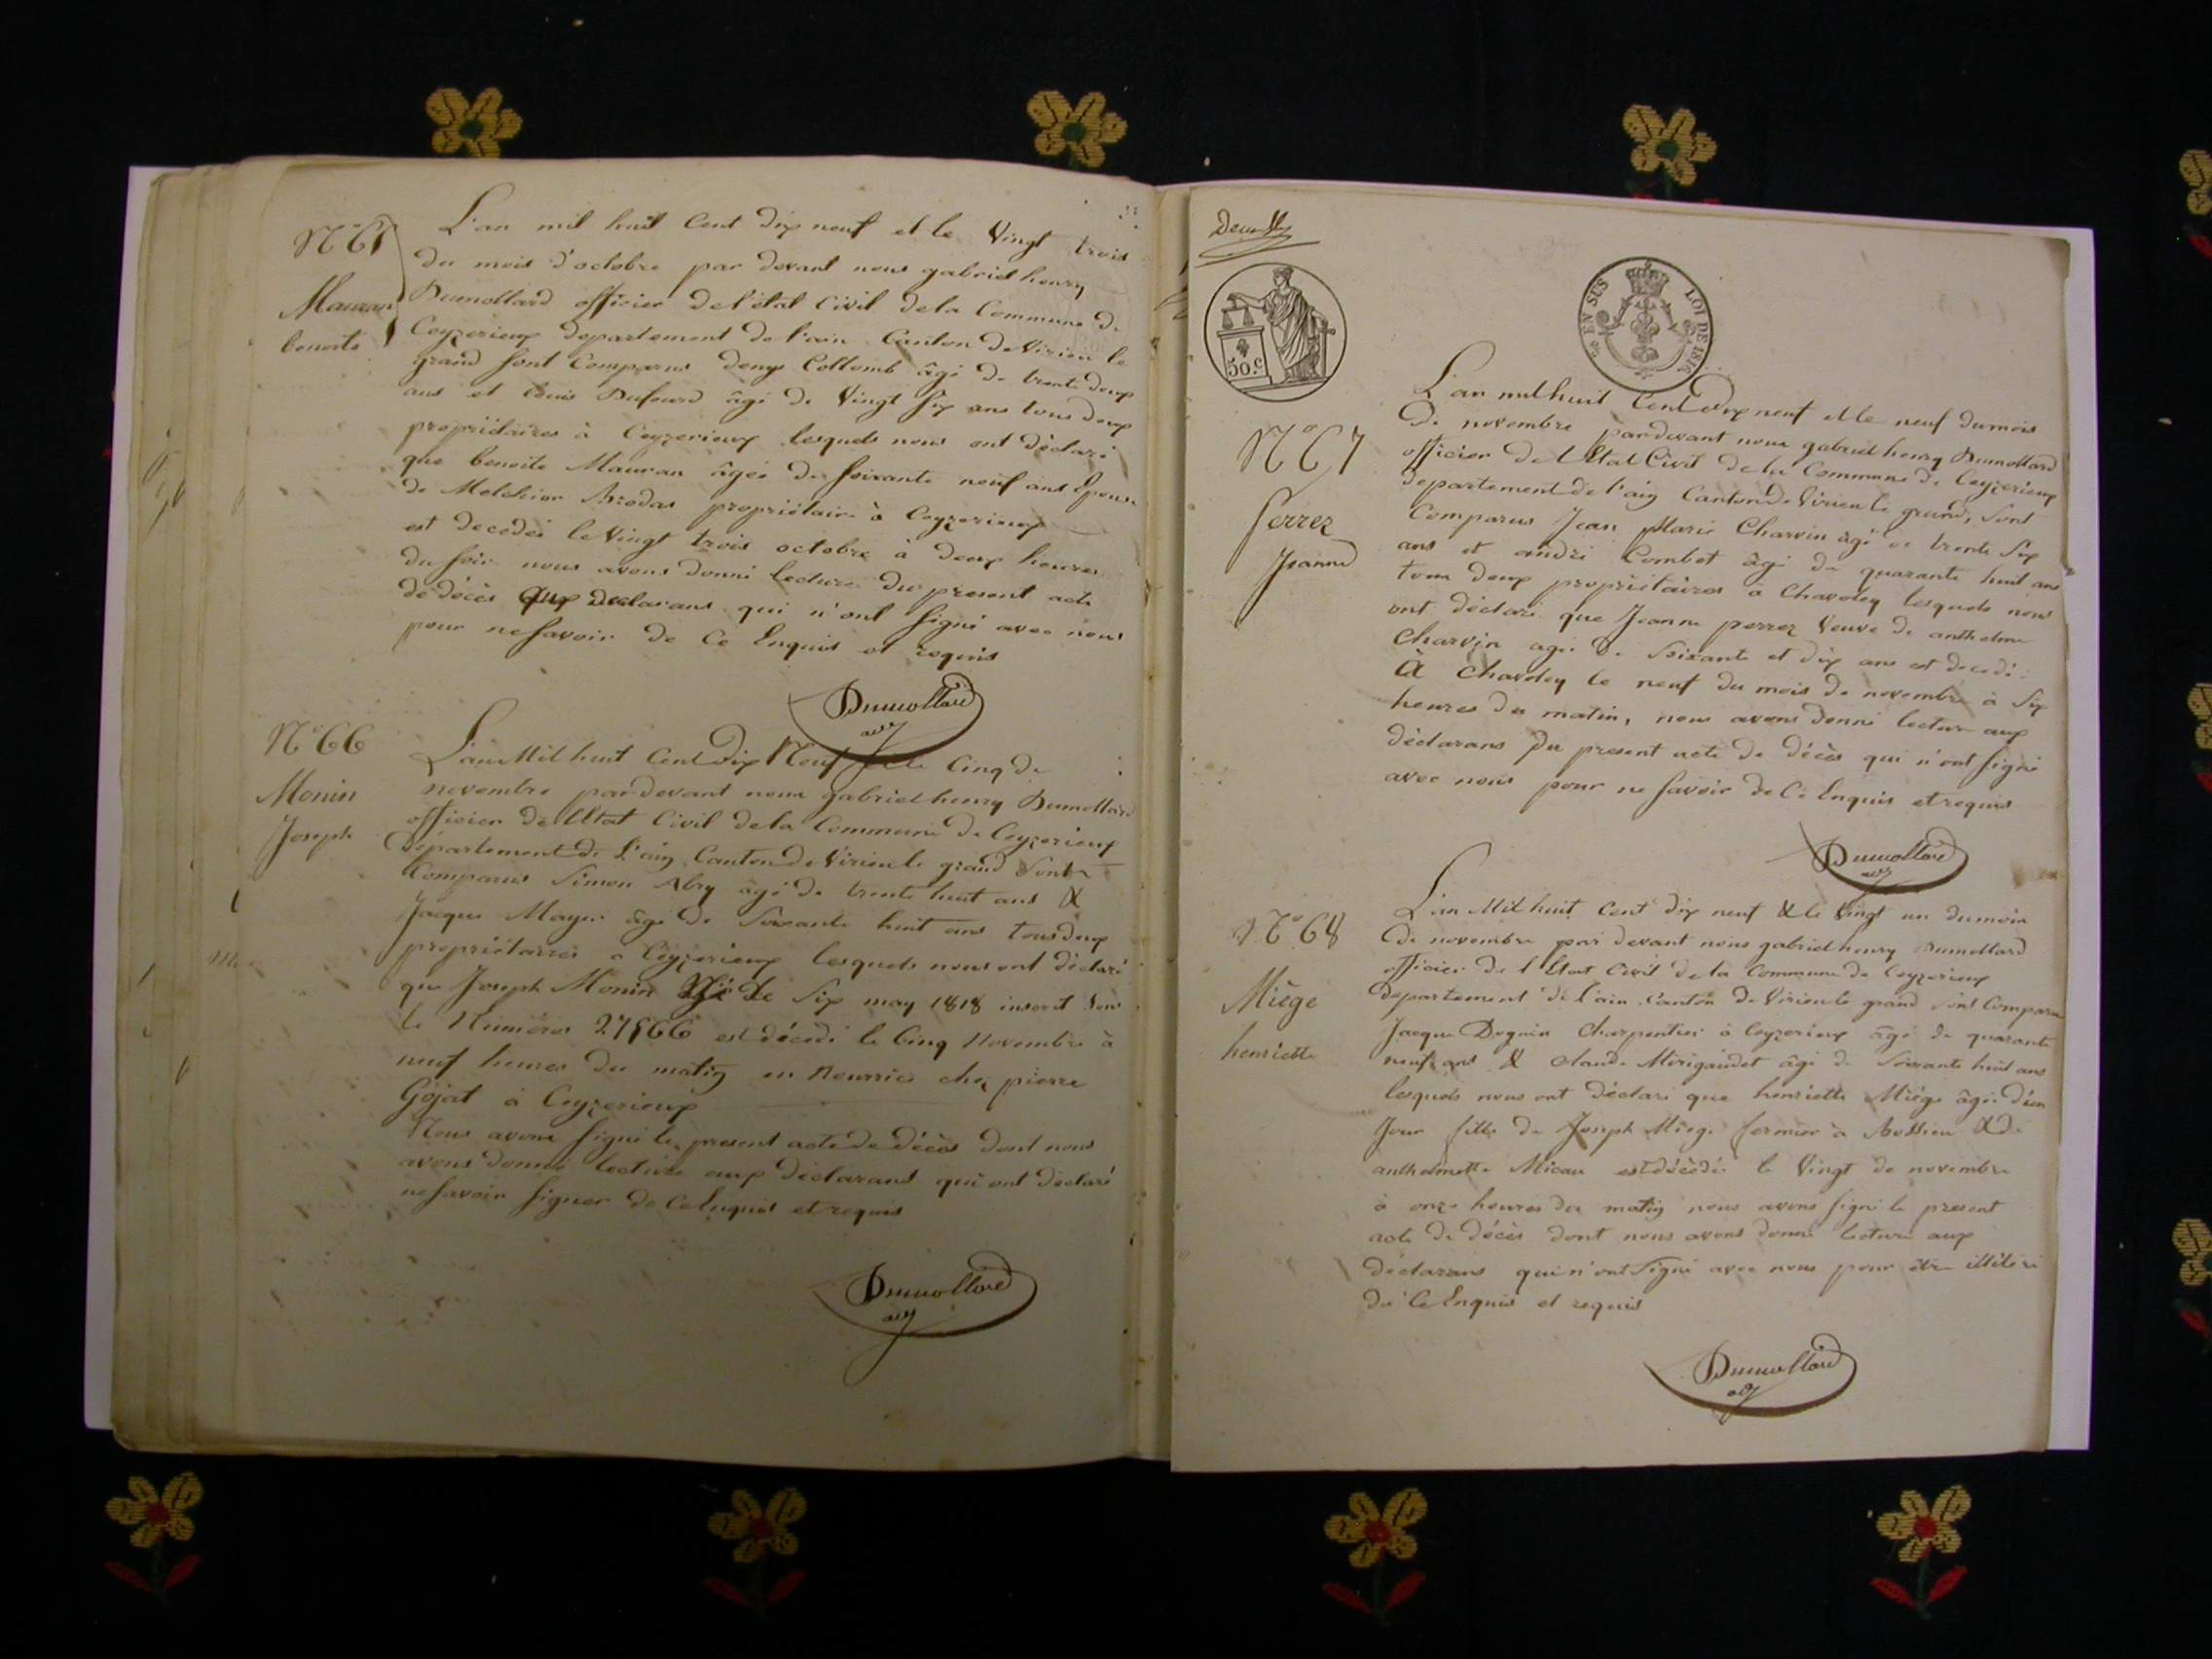 N° 65
Mauran
benoite
L'an mil huit Cent dix neuf et le Vingt trois
du mois d'octobre par devant nous gabriel henry
Dumollard officier de l'état Civil de la Commune de
Ceyzerieux departement de l'ain Canton de Virieu le
grand sont Comparus denys Collomb âgé de trente deux
ans et Louis Dufourd âgé de Vingt six ans tous deux
propriétaires à Ceyzerieux lesquels nous ont déclaré
que benoite Mauran âgée de soixante neuf ans Epouse
de Melchior propriétaire à Ceyzerieux
est decedée le Vingt trois octobre à deux heures
du soir nous avons donné lecture du present acte
de décès aux declarans qui n'ont signé avec nous
pour ne savoir de Ce Enquis et requis
Dumollard
N° 66
Monin
Joseph
L'an Mil huit Cent Dix Neuf et le Cinq de
novembre par devant nous gabriel henry Dumollard
officier de l'Etat Civil de la Commune de Ceyzerieux
Département de L'ain Canton de Virieu le grand sont
Comparus Simon Abry âgé de trente huit ans &
Jacque Mayer âgé de Soixante huit ans tous deux
propriétaires a Ceyzerieux lesquels nous ont déclaré
que Joseph Monin Né le six may 1818 inscrit sous
le Numéros 27566 est décédé le Cinq Novembre à
neuf heures du matin en Nourrice chez pierre
Gojat à Ceyzerieux
Nous avons signé le present acte de décès dont nous
avons donné lecture aux déclarans qui ont déclaré
ne savoir signer de Ce Enquis et requis
Dumollard
50.c
EN SUS
LOI DE 1816
N° 67
perrez
Jeanne
L'an mil huit Cent dix neuf et le neuf du mois
de novembre par devant nous gabriel henry Dumollard
officier de l'Etat Civil de la Commune de Ceyzerieux
departement de l'ain Canton de Virieu le grand, sont
Comparus Jean Marie Charvin âgé de trente six
ans et andré Combet âgé de quarante huit ans
tous deux propriétaires à Chavoley lesquels nous
ont déclaré que Jeanne perrez Veuve de anthelme
Charvin agée de soixante et dix ans est decedé
à Chavoley le neuf du mois de novembre à six
heures du matin, nous avons donné lecture aux
déclarans du present acte de décès qui n'ont signé
avec nous pour ne savoir de Ce Enquis et requis
Dumollard
N° 68
Miège
henriette
L'an Mil huit Cent dix neuf & le Vingt un du mois
de novembre par devant nous gabriel henry Dumollard
officier de l'Etat Civil de la Commune de Ceyzerieux
departement de l'ain Canton de Virieu le grand sont Comparus
Jacque Doguin Charpentier à Ceyzerieux âgé de quarante
neuf ans & claude Mirigaudet âgé de Soixante huit ans
lesquels nous ont déclaré que henriette Miège âgée d'un
Jour fille de Joseph Miege fermier à & de
anthelmette Micau est décédée le Vingt de novembre
à onze heures du matin nous avons signé le present
acte de décès dont nous avons donné lecture aux
déclarans qui n'ont signé avec nous pour être illitéré
de Ce Enquis et requis
Dumollard